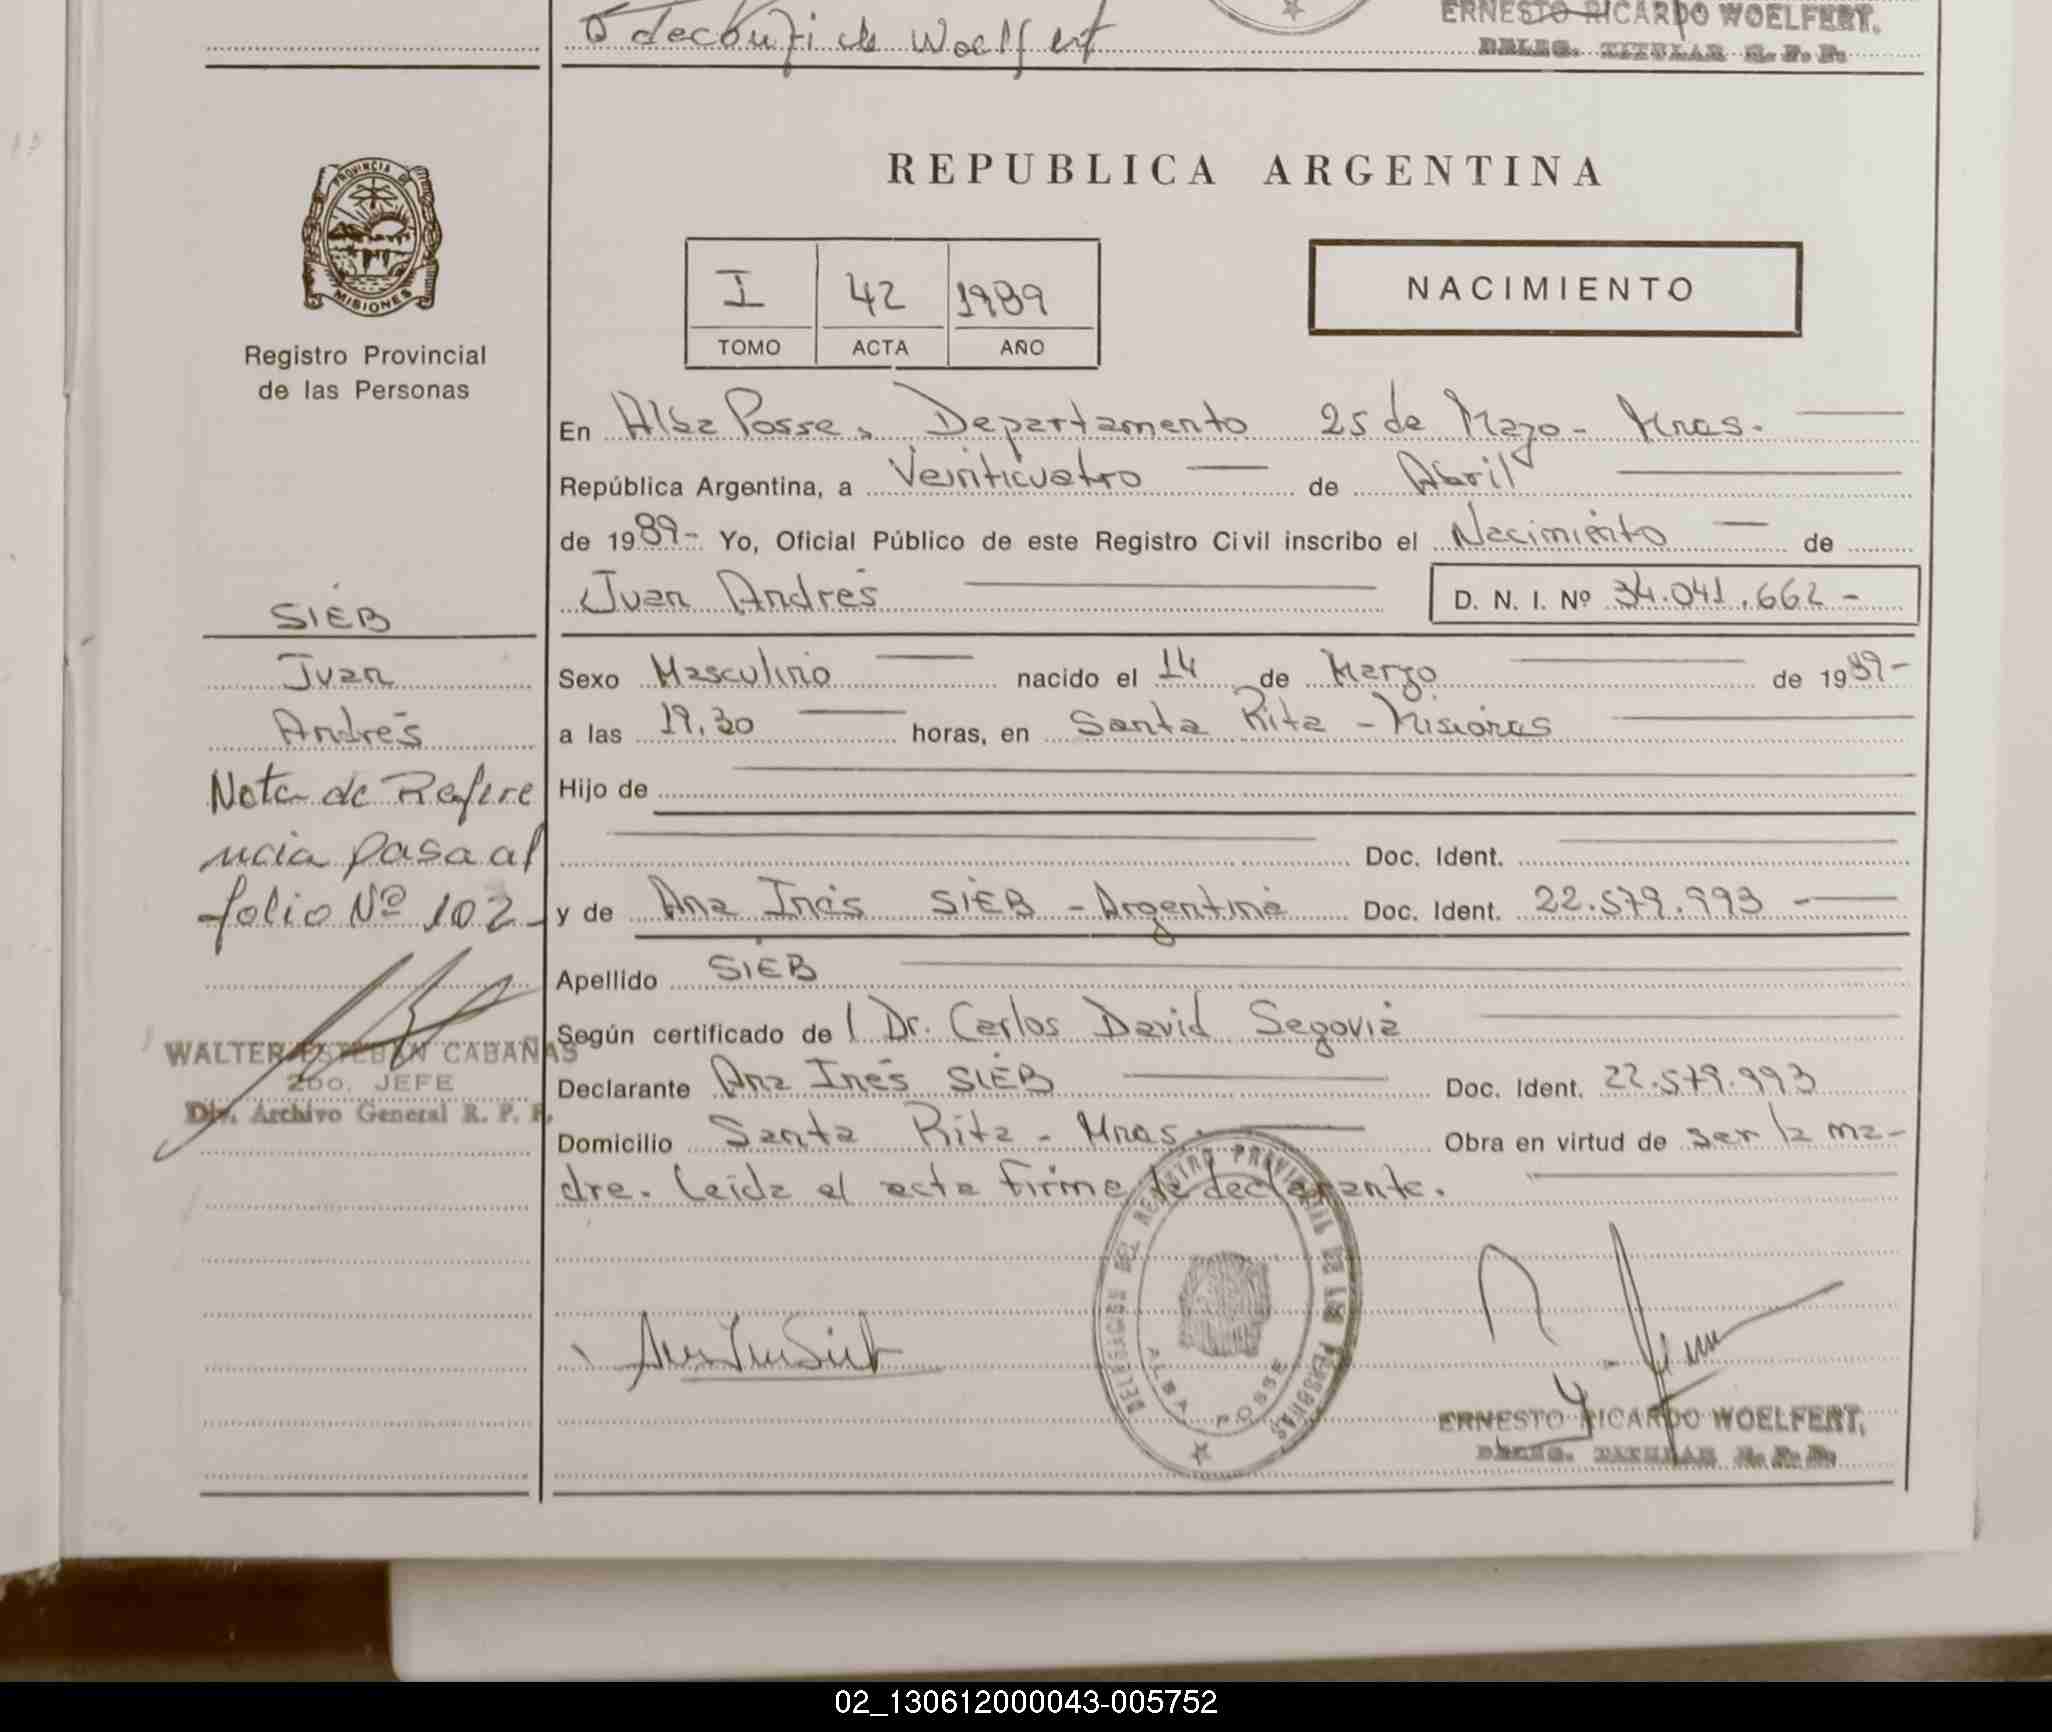 Woelfert
ERNESTO RICARDO WOELFERT,
DELEG. TITULAR R. P. P.
PROVINCIA DE
MISIONES
Registro Provincial
de las Personas
REPUBLICA ARGENTINA
I 42 1989
TOMO ACTA AÑO
NACIMIENTO
En Alba Posse, Departamento 25 de Mayo - Mnes.
República Argentina, a Veinticuatro de Abril
de 1989- Yo, Oficial Público de este Registro Civil inscribo el Nacimiento de
Juan Andrés D. N. I. Nº 34.041.662-
Sexo Masculino nacido el 14 de Marzo de 1989-
a las 19,30 horas, en Santa Rita - Misiones
Hijo de
Doc. Ident.
y de Ana Inés SIEB - Argentina Doc. Ident. 22.579.993 -
Apellido SIEB
Según certificado de / Dr. Carlos David Segovia
Declarante Ana Inés SIEB Doc. Ident. 22.579.993
Domicilio Santa Rita - Mnes. Obra en virtud de ser la ma-
dre. Leída el acta firma la declarante.
SIEB
Juan
Andrés
Nota de Refere
ncia pasa al
folio Nº 102-
WALTER ESTEBAN CABAÑAS
2do. JEFE
Div. Archivo General R. P. P.
DELEGACION DEL REGISTRO PROVINCIAL DE LAS PERSONAS
ALBA POSSE
Ana Inés Sieb
ERNESTO RICARDO WOELFERT,
DELEG. TITULAR R. P. P.
02_130612000043-005752